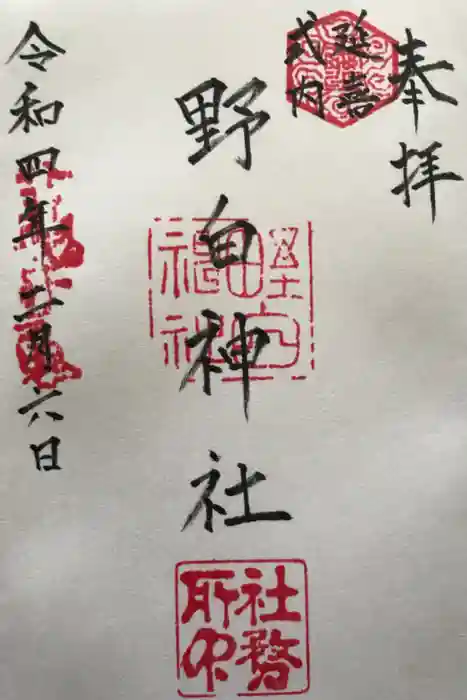 奉拝
延喜
式内
野白神社
社務
所印
令和四年二月六日